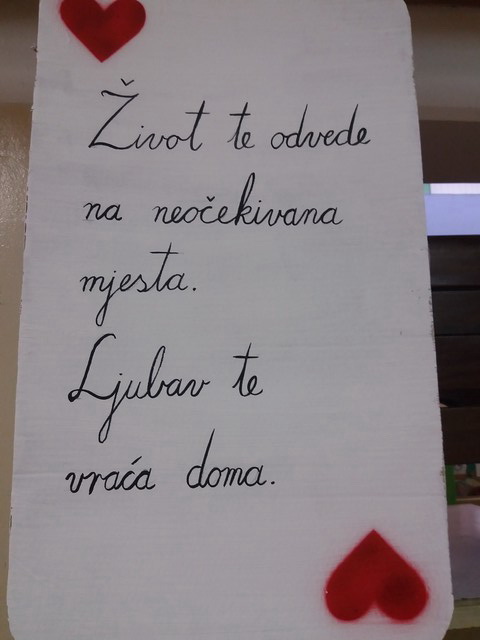 Život te odvede
na neočekivana
mjesta.
Ljubav te
vraća doma.